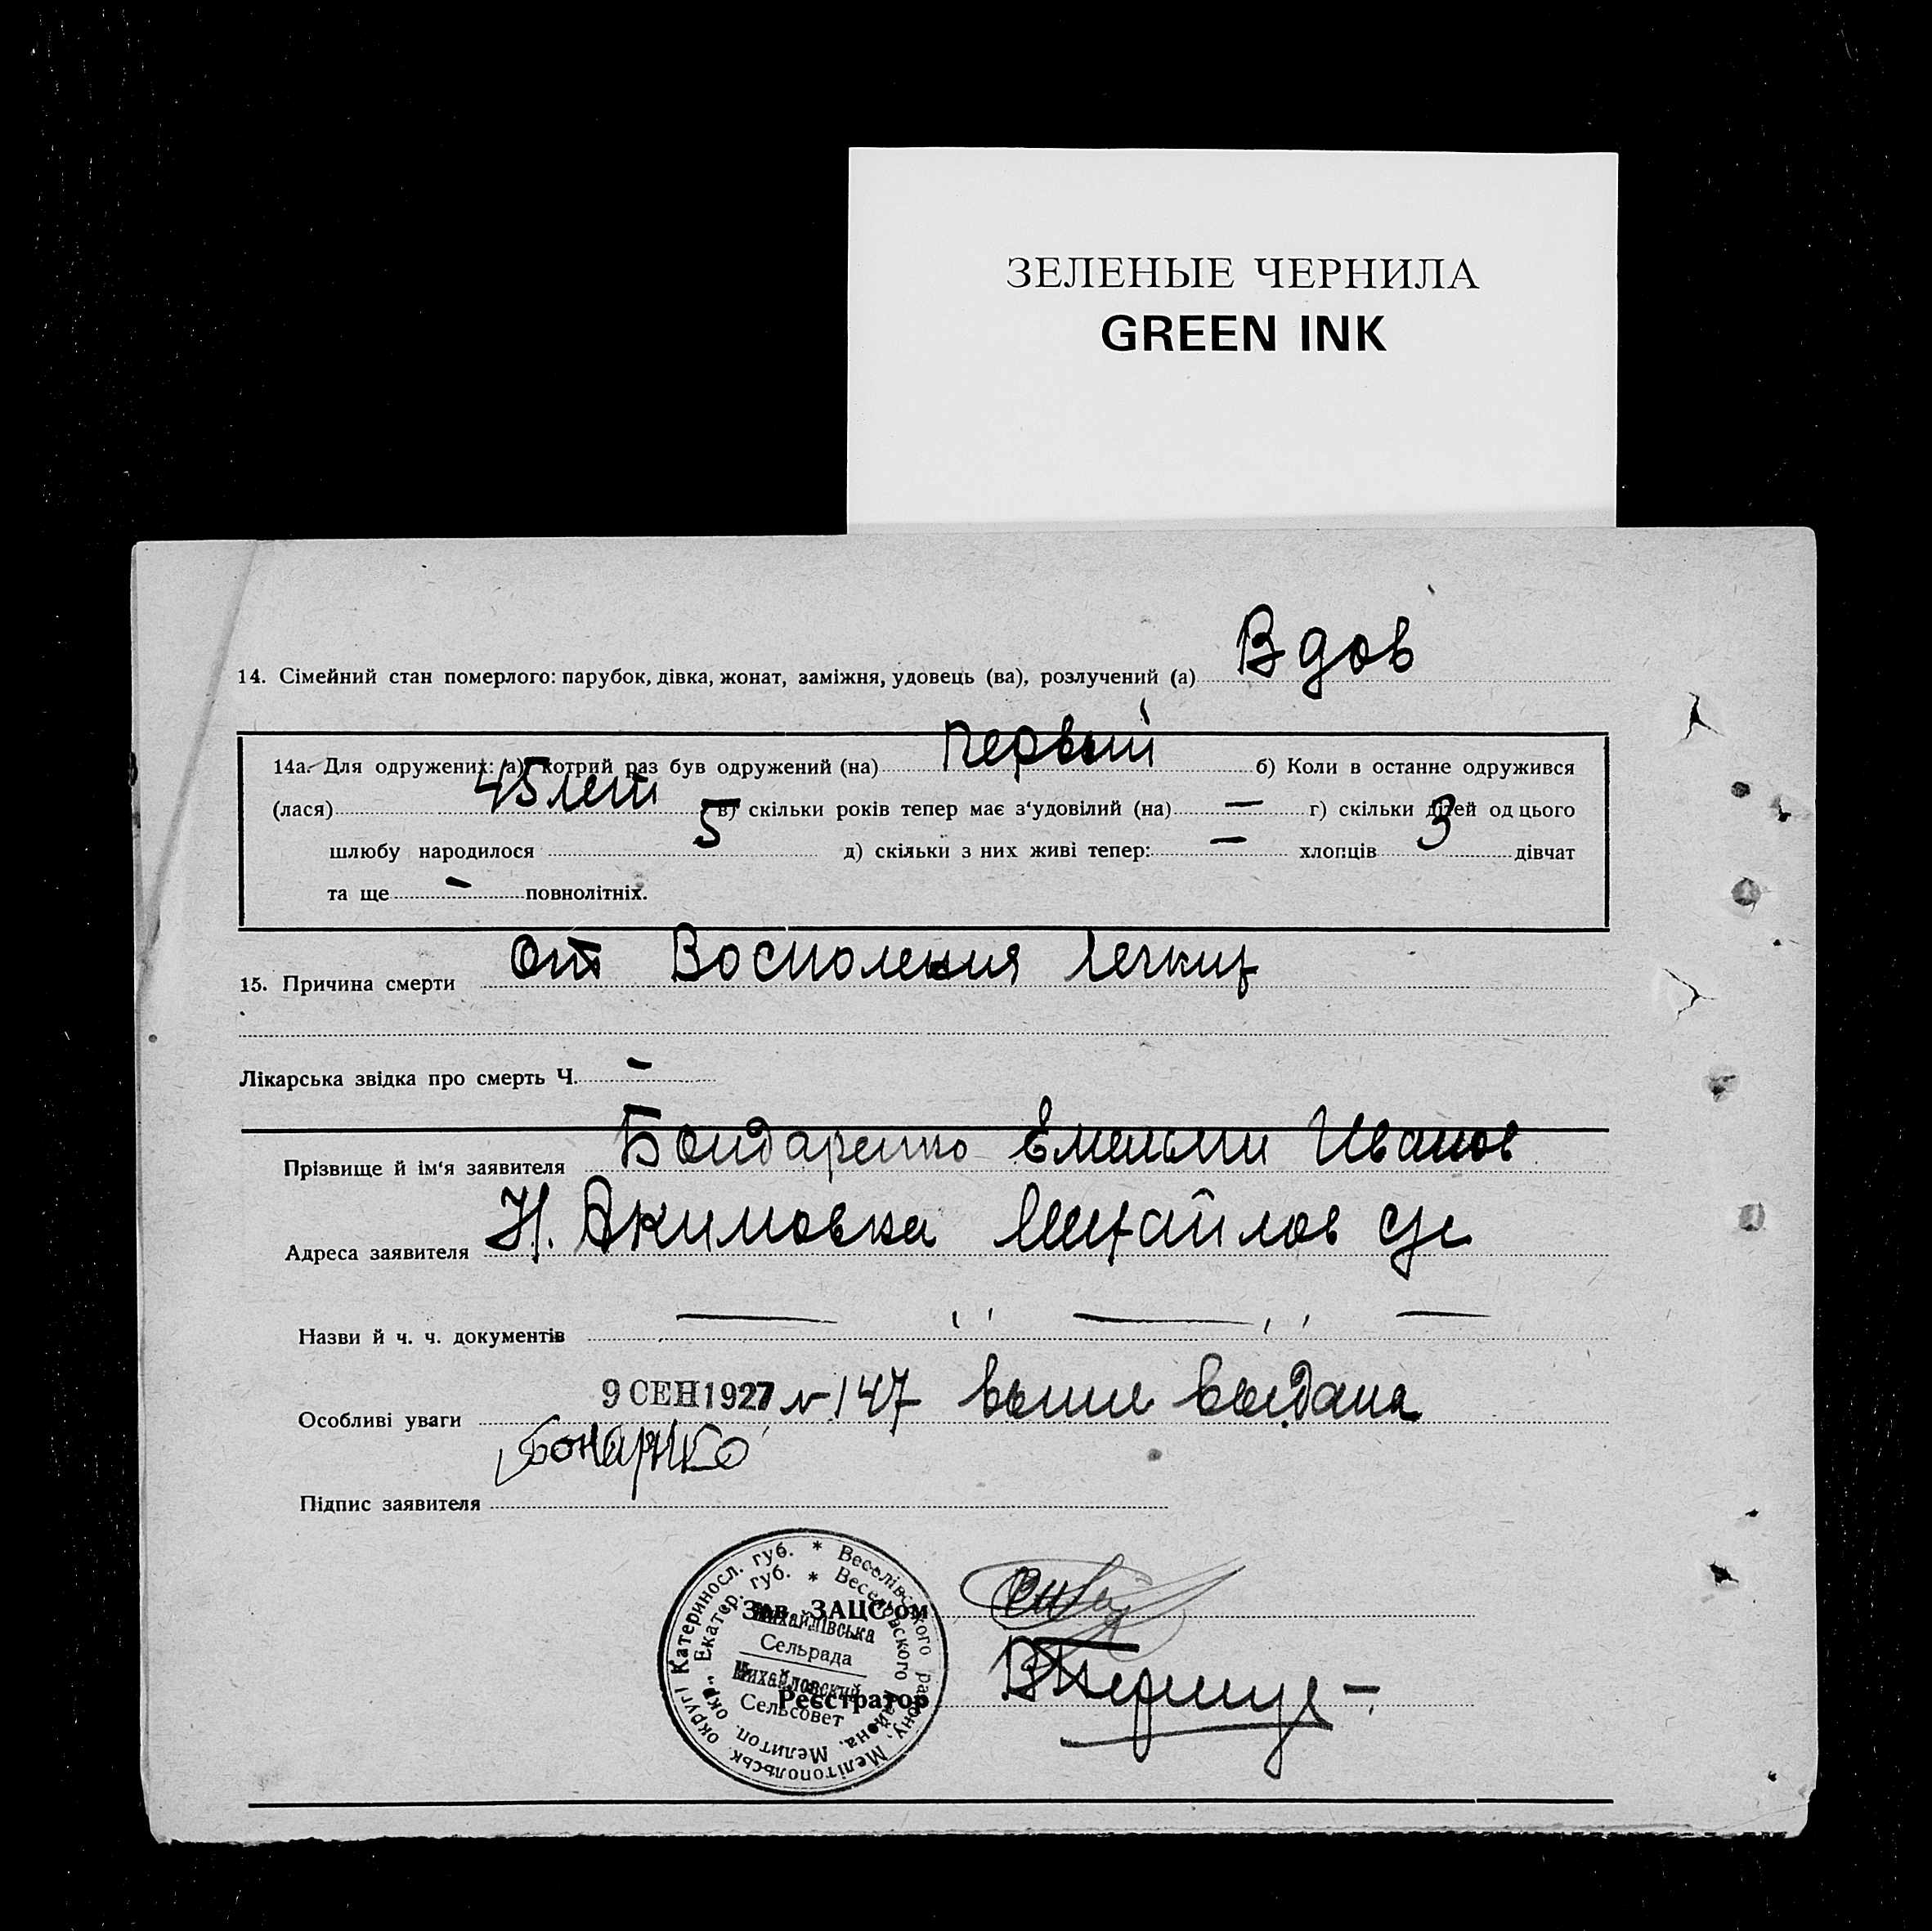 ЗЕЛЕНЫЕ ЧЕРНИЛА
GREEN INK
14. Сімейний стан померлого: парубок, дівка, жонат, заміжня, удовець (ва), розлучений (а) Вдов
14а. Для одружених: а) котрий раз був одружений (на) первый б) Коли в останне одружився
(лася) 45 лет в) скільки років тепер має з'удовілий (на) — г) скільки дітей од цього
шлюбу народилося 5 д) скільки з них живі тепер: — хлопців 3 дівчат
та ще - повнолітніх.
15. Причина смерти От Восполения легких
Лікарська звідка про смерть Ч. -
Прізвище й ім'я заявителя Бондаренко Емельян Иванов
Адреса заявителя Н. Акимовка Михайлов с/с
Назви й ч. ч. документів — ,, — ,, —
Особливі уваги 9 СЕН 1927 № 147 выпис выдана
Підпис заявителя Бонарнко
Зав. ЗАЦС'ом
Реєстратор
* Веселівського району, Мелітопольськ. округі Катеринослав. губ.
* Веселовского района, Мелитоп. окр., Екатер. губ.
Михайлівська
Сельрада
Михайловский
Сельсовет